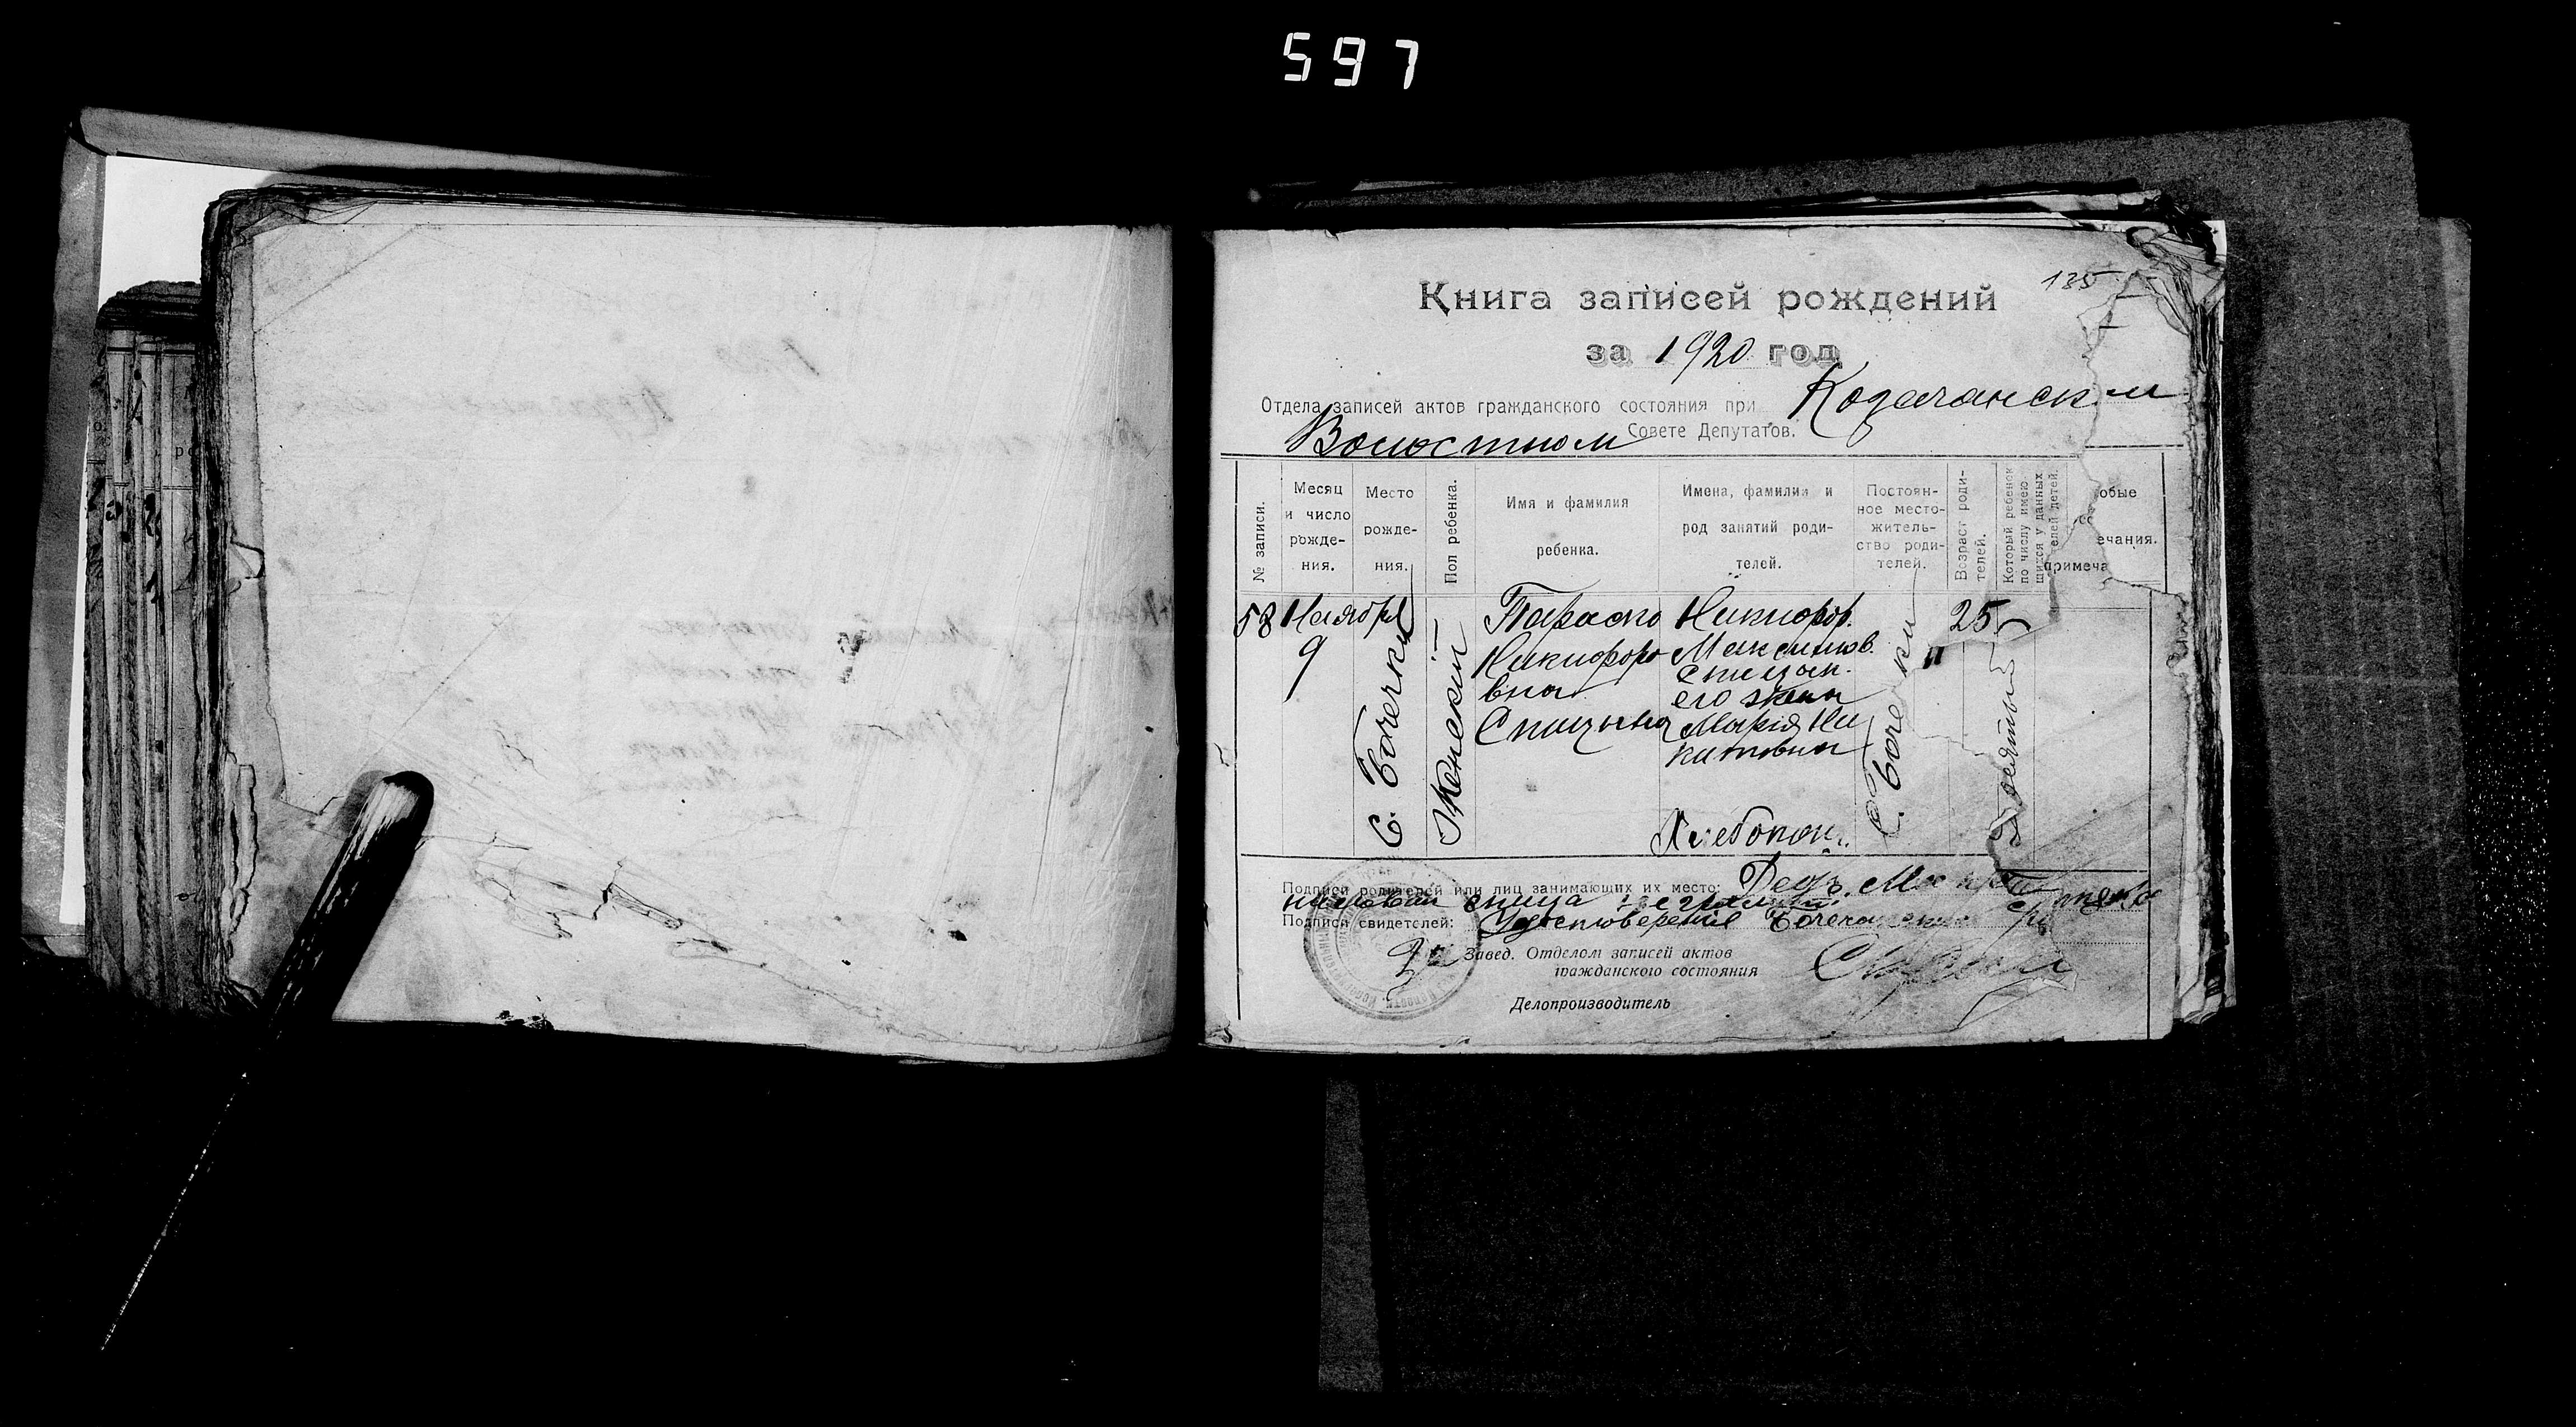 597
135
Книга записей рождений
за 1920 год
Отдела записей актов гражданского состояния при Козачанском
Волостном Совете Депутатов.
№ записи.
Месяц и число рожде- ния.
Место рожде- ния.
Пол ребенка.
Имя и фамилия ребенка.
Имена, фамилии и род занятий роди- телей.
Постоян- ное место- житель- ство роди- телей.
Возраст роди- телей.
Который ребенок по числу имею- щихся у данных елей детей.
обые примеча ечания.
58
Ноября
9
С. Бочечки
Женский
Параско
Никифоро
вна
Спицына
Никифор.
Максимов.
его жена
Мария Ни
китовна
Хлебопаш.
С. Боче ки
25
Подписи родителей или лиц занимающих их место:
Подписи свидетелей: Удостоверение
Завед. Отделом записей актов
гражданского состояния
Делопроизводитель